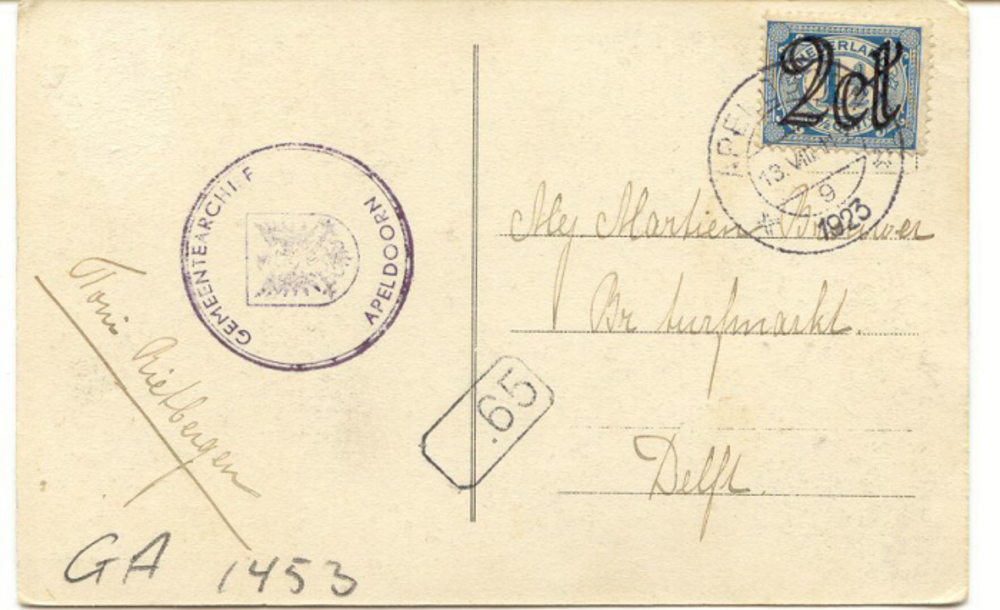 NEDERLAND
2ct
APEL
13.VIII
9
1923
GEMEENTEARCHIEF
APELDOORN
Mej Martien Brouwer
Br turfmarkt.
Delft.
Toni Rietbergen
.65
GA 1453